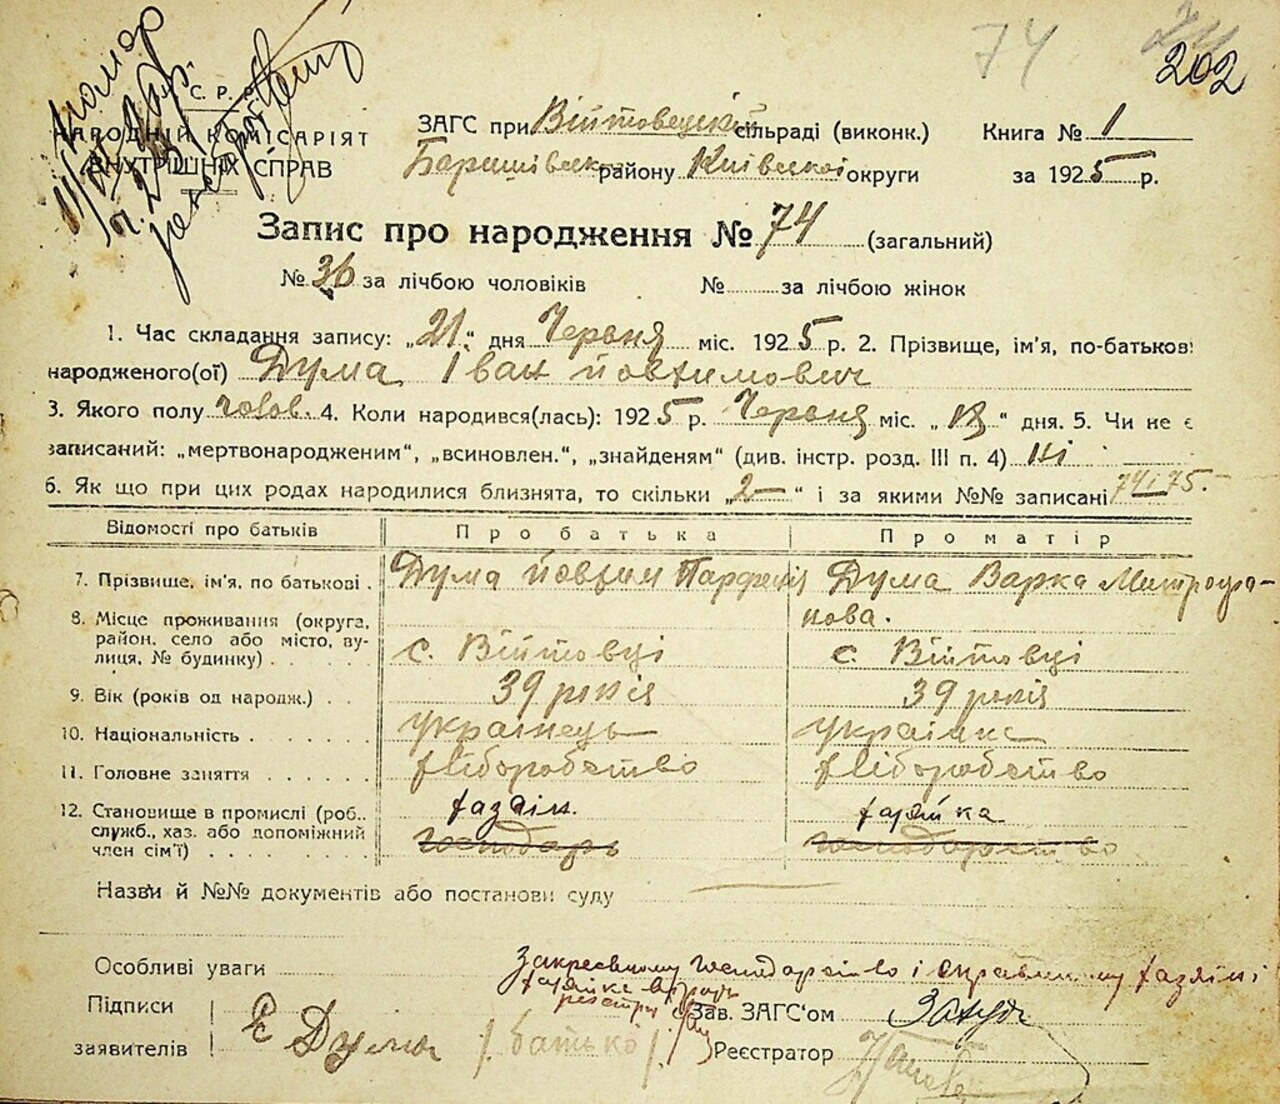 74
202
С. Р. Р.
НАРОДНІЙ КОМІСАРІЯТ
ВНУТРІШНІХ СПРАВ
ЗАГС при Війтовецькій сільраді (виконк.) Книга № 1
Баришівськ району Київської округи за 1925 р.
Запис про народження № 74 (загальний)
№ 36 за лічбою чоловіків № за лічбою жінок
1. Час складання запису: „21“ дня Червня міс. 1925 р. 2. Прізвище, ім'я, по-батькові
народженого(ої) Дума Іван Йовхимович
3. Якого полу чолов. 4. Коли народився(лась): 1925 р. Червня міс. „ “ дня. 5. Чи не є
записаний: „мертвонародженим“, „всиновлен.“, „знайденям“ (див. інстр. розд. III п. 4) ні
6. Як що при цих родах народилися близнята, то скільки „2—“ і за якими №№ записані 74 і 75.-
Відомості про батьків Про батька Про матір
7. Прізвище, ім'я, по батькові. Дума Йовхим Парфенів Дума Варка Митрофа-
нова.
8. Місце проживання (округа,
район, село або місто, ву-
лиця, № будинку) с. Війтовці с. Війтовці
9. Вік (років од народж.) 39 років 39 років
10. Національність Українець Українка
11. Головне заняття хліборобство хліборобство
12. Становище в промислі (роб.,
служб., хаз. або допоміжний
член сім'ї) хазяїн. хазяйка
господарь господарство
Назви й №№ документів або постанови суду
Особливі уваги Закресленому господарство і справленому хазяїн і
хазяйка
Підписи
заявителів Є Дума /батько/
Зав. ЗАГС'ом
Реєстратор